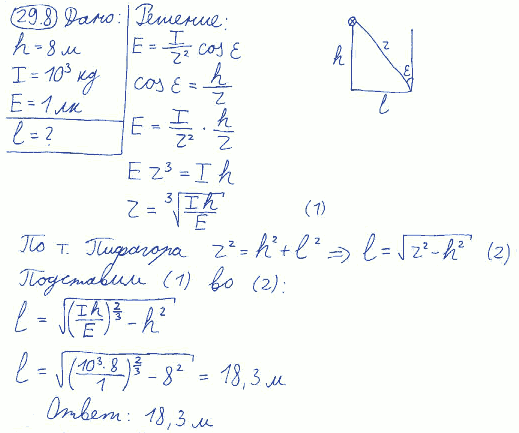 29.8 Дано: Решение:
h = 8 м
I = 10³ кд
E = 1 лк
l = ?
E = I/r² cos ε
cos ε = h/r
E = I/r² · h/r
E r³ = I h
r = ³√(I h/E) (1)
h r ε l
По т. Пифагора r² = h² + l² ⇒ l = √(r² − h²) (2)
Подставим (1) во (2):
l = √((Ih/E)^(2/3) − h²)
l = √((10³·8/1)^(2/3) − 8²) = 18,3 м
Ответ: 18,3 м